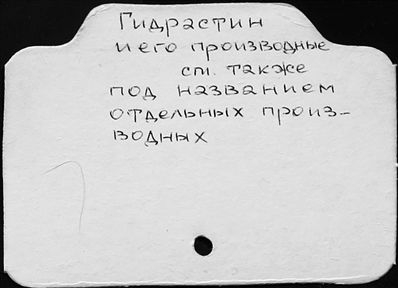 Гидрастин
и его производные
см. также
под названием
отдельных произ-
водных